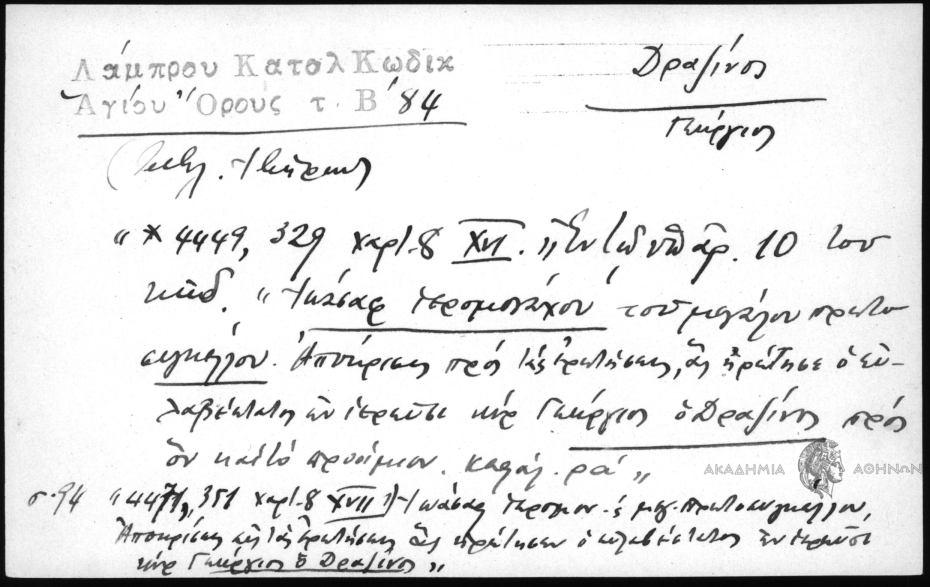 Λάμπρου Καταλ Κωδικ
Ἁγίου Ὄρους τ. Β' 84
Δραζῖνος
Γεώργιος
(Μον. Ἰβήρων)
"* 4449, 329 χαρτ. 8 XVI. "Ἐν τῷ ὑπ' ἀρ. 10 του
κωδ. "Ἰωάσαφ ἱερομονάχου τοῦ μεγάλου πρωτο
συγκέλλου. Ἀποκρίσεις πρὸς τὰς ἐρωτήσεις, ἃς ἠρώτησε ὁ εὐ-
λαβέστατος ἐν ἱερεῦσι κὺρ Γεώργιος ὁ Δραζῖνος πρὸς
ὃν καὶ τὸ προοίμιον.
ΑΚΑΔΗΜΙΑ ΑΘΗΝΩΝ
σ. 94 "4471, 351 χαρτ. 8 XVII Ἰωάσαφ ἱερομον. μεγ. Πρωτοσυγκέλλου,
Ἀποκρίσεις εἰς τὰς ἐρωτήσεις ἃς ἠρώτησεν ὁ εὐλαβέστατος ἐν ἱερεῦσι
κὺρ Γεώργιος ὁ Δραζῖνος"